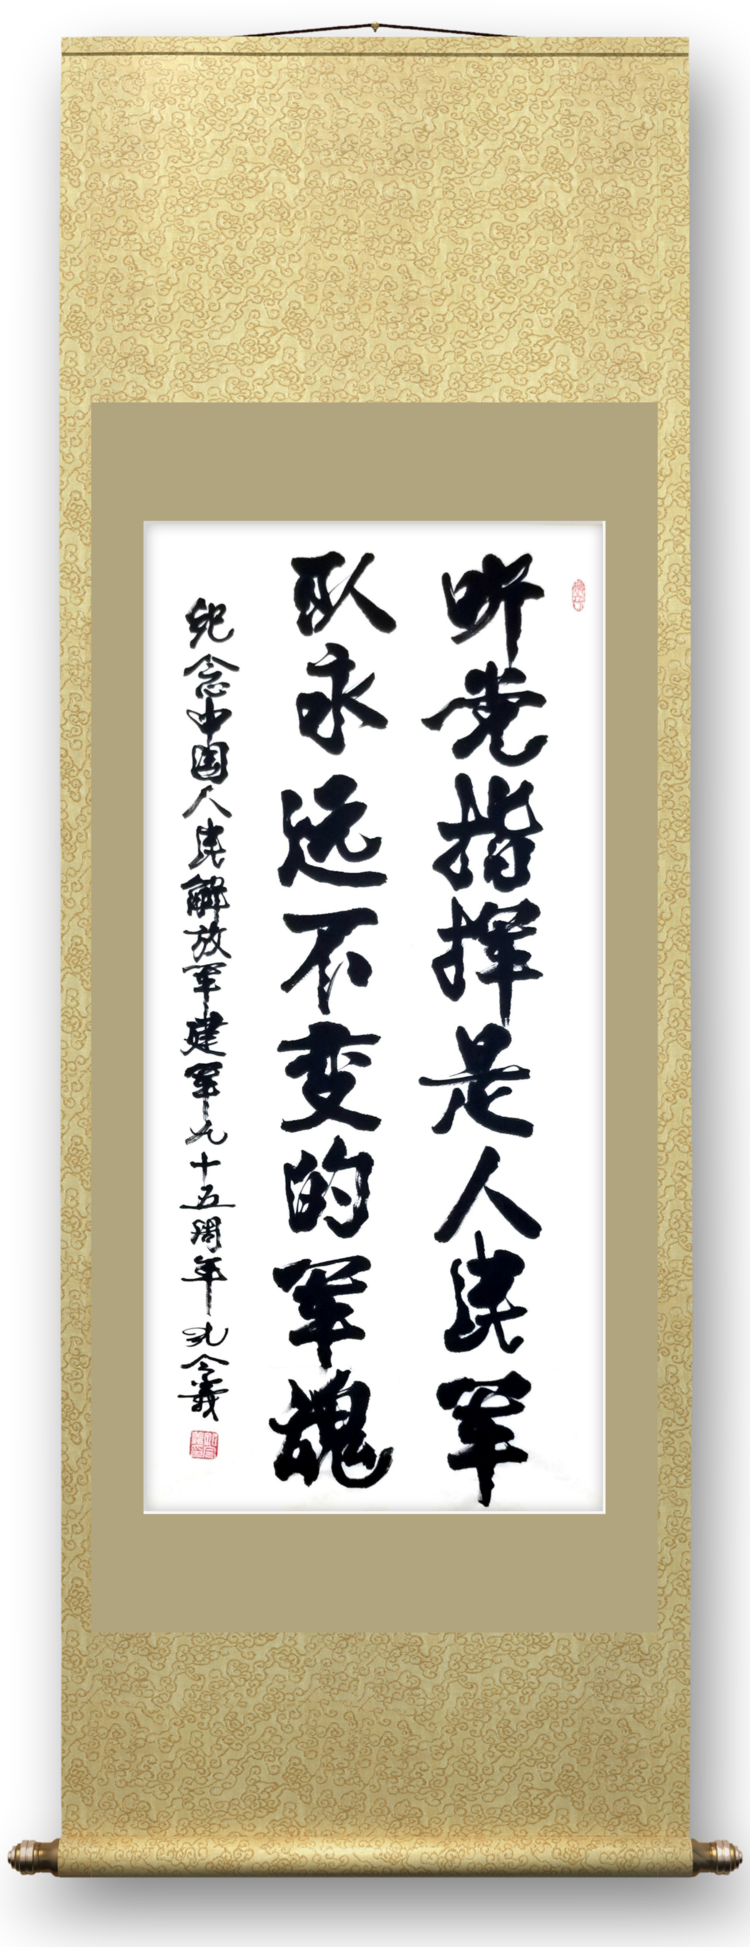 听党指挥是人民军
队永远不变的军魂
纪念中国人民解放军建军九十五周年 令義